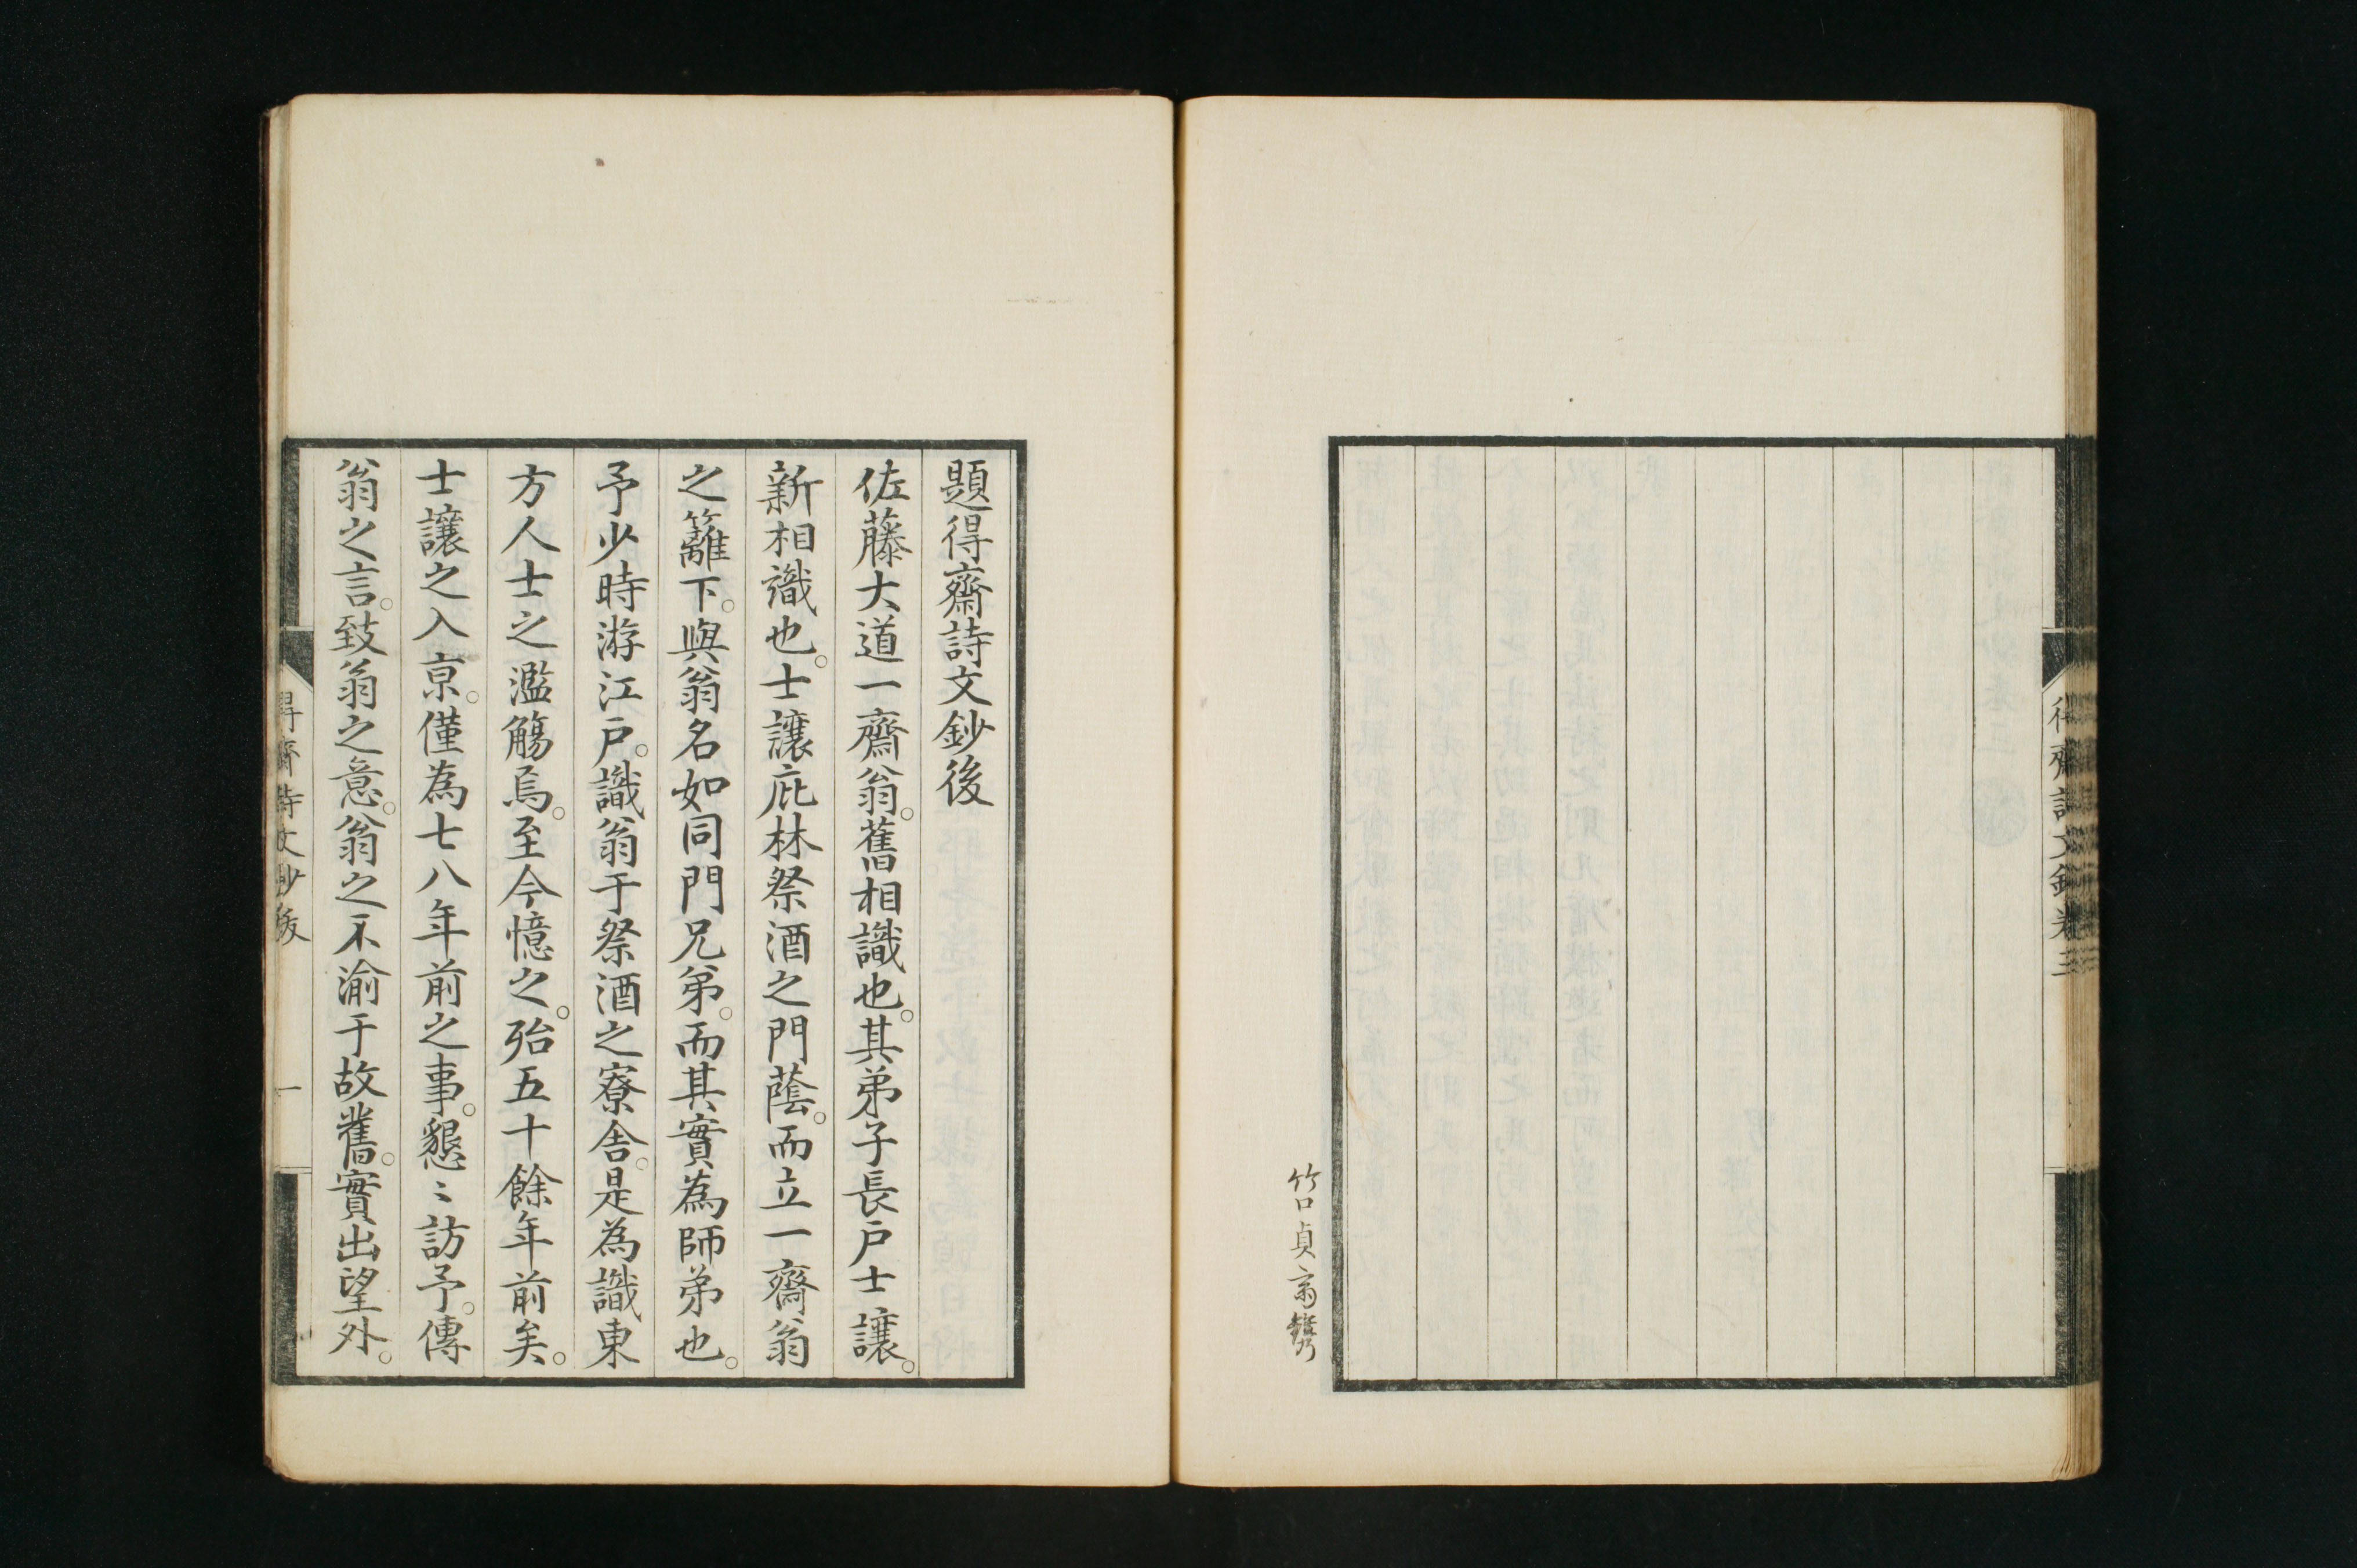 得齋詩文鈔卷三
竹口貞齋鐫
題得齋詩文鈔後
佐藤大道一齋翁。舊相識也。其弟子長戶士讓。
新相識也。士讓庇林祭酒之門蔭。而立一齋翁
之籬下。與翁名如同門兄弟。而其實為師弟也。
予少時游江戶。識翁于祭酒之寮舍。是為識東
方人士之濫觴焉。至今憶之。殆五十餘年前矣。
士讓之入京。僅為七八年前之事。懇〻訪予。傳
翁之言。致翁之意。翁之不渝于故舊。實出望外。
得齋詩文鈔後
一